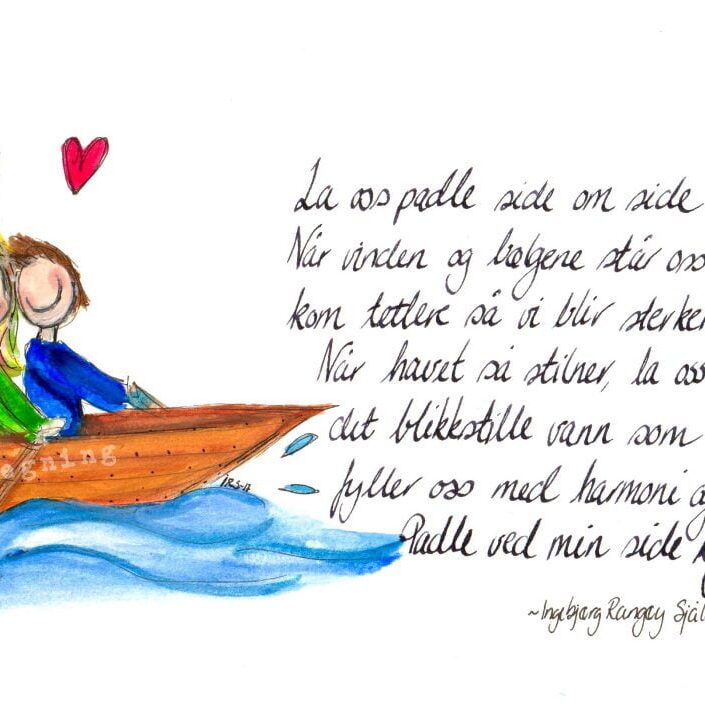 La oss padle side om side
Når vinden og bølgene står oss
kom tettere så vi blir sterker
Når havet så stilner, la oss
det blikkstille vann som
fyller oss med harmoni og
Padle ved min side
~Ingebjørg Rangøy Sjål
egning
IRS-17